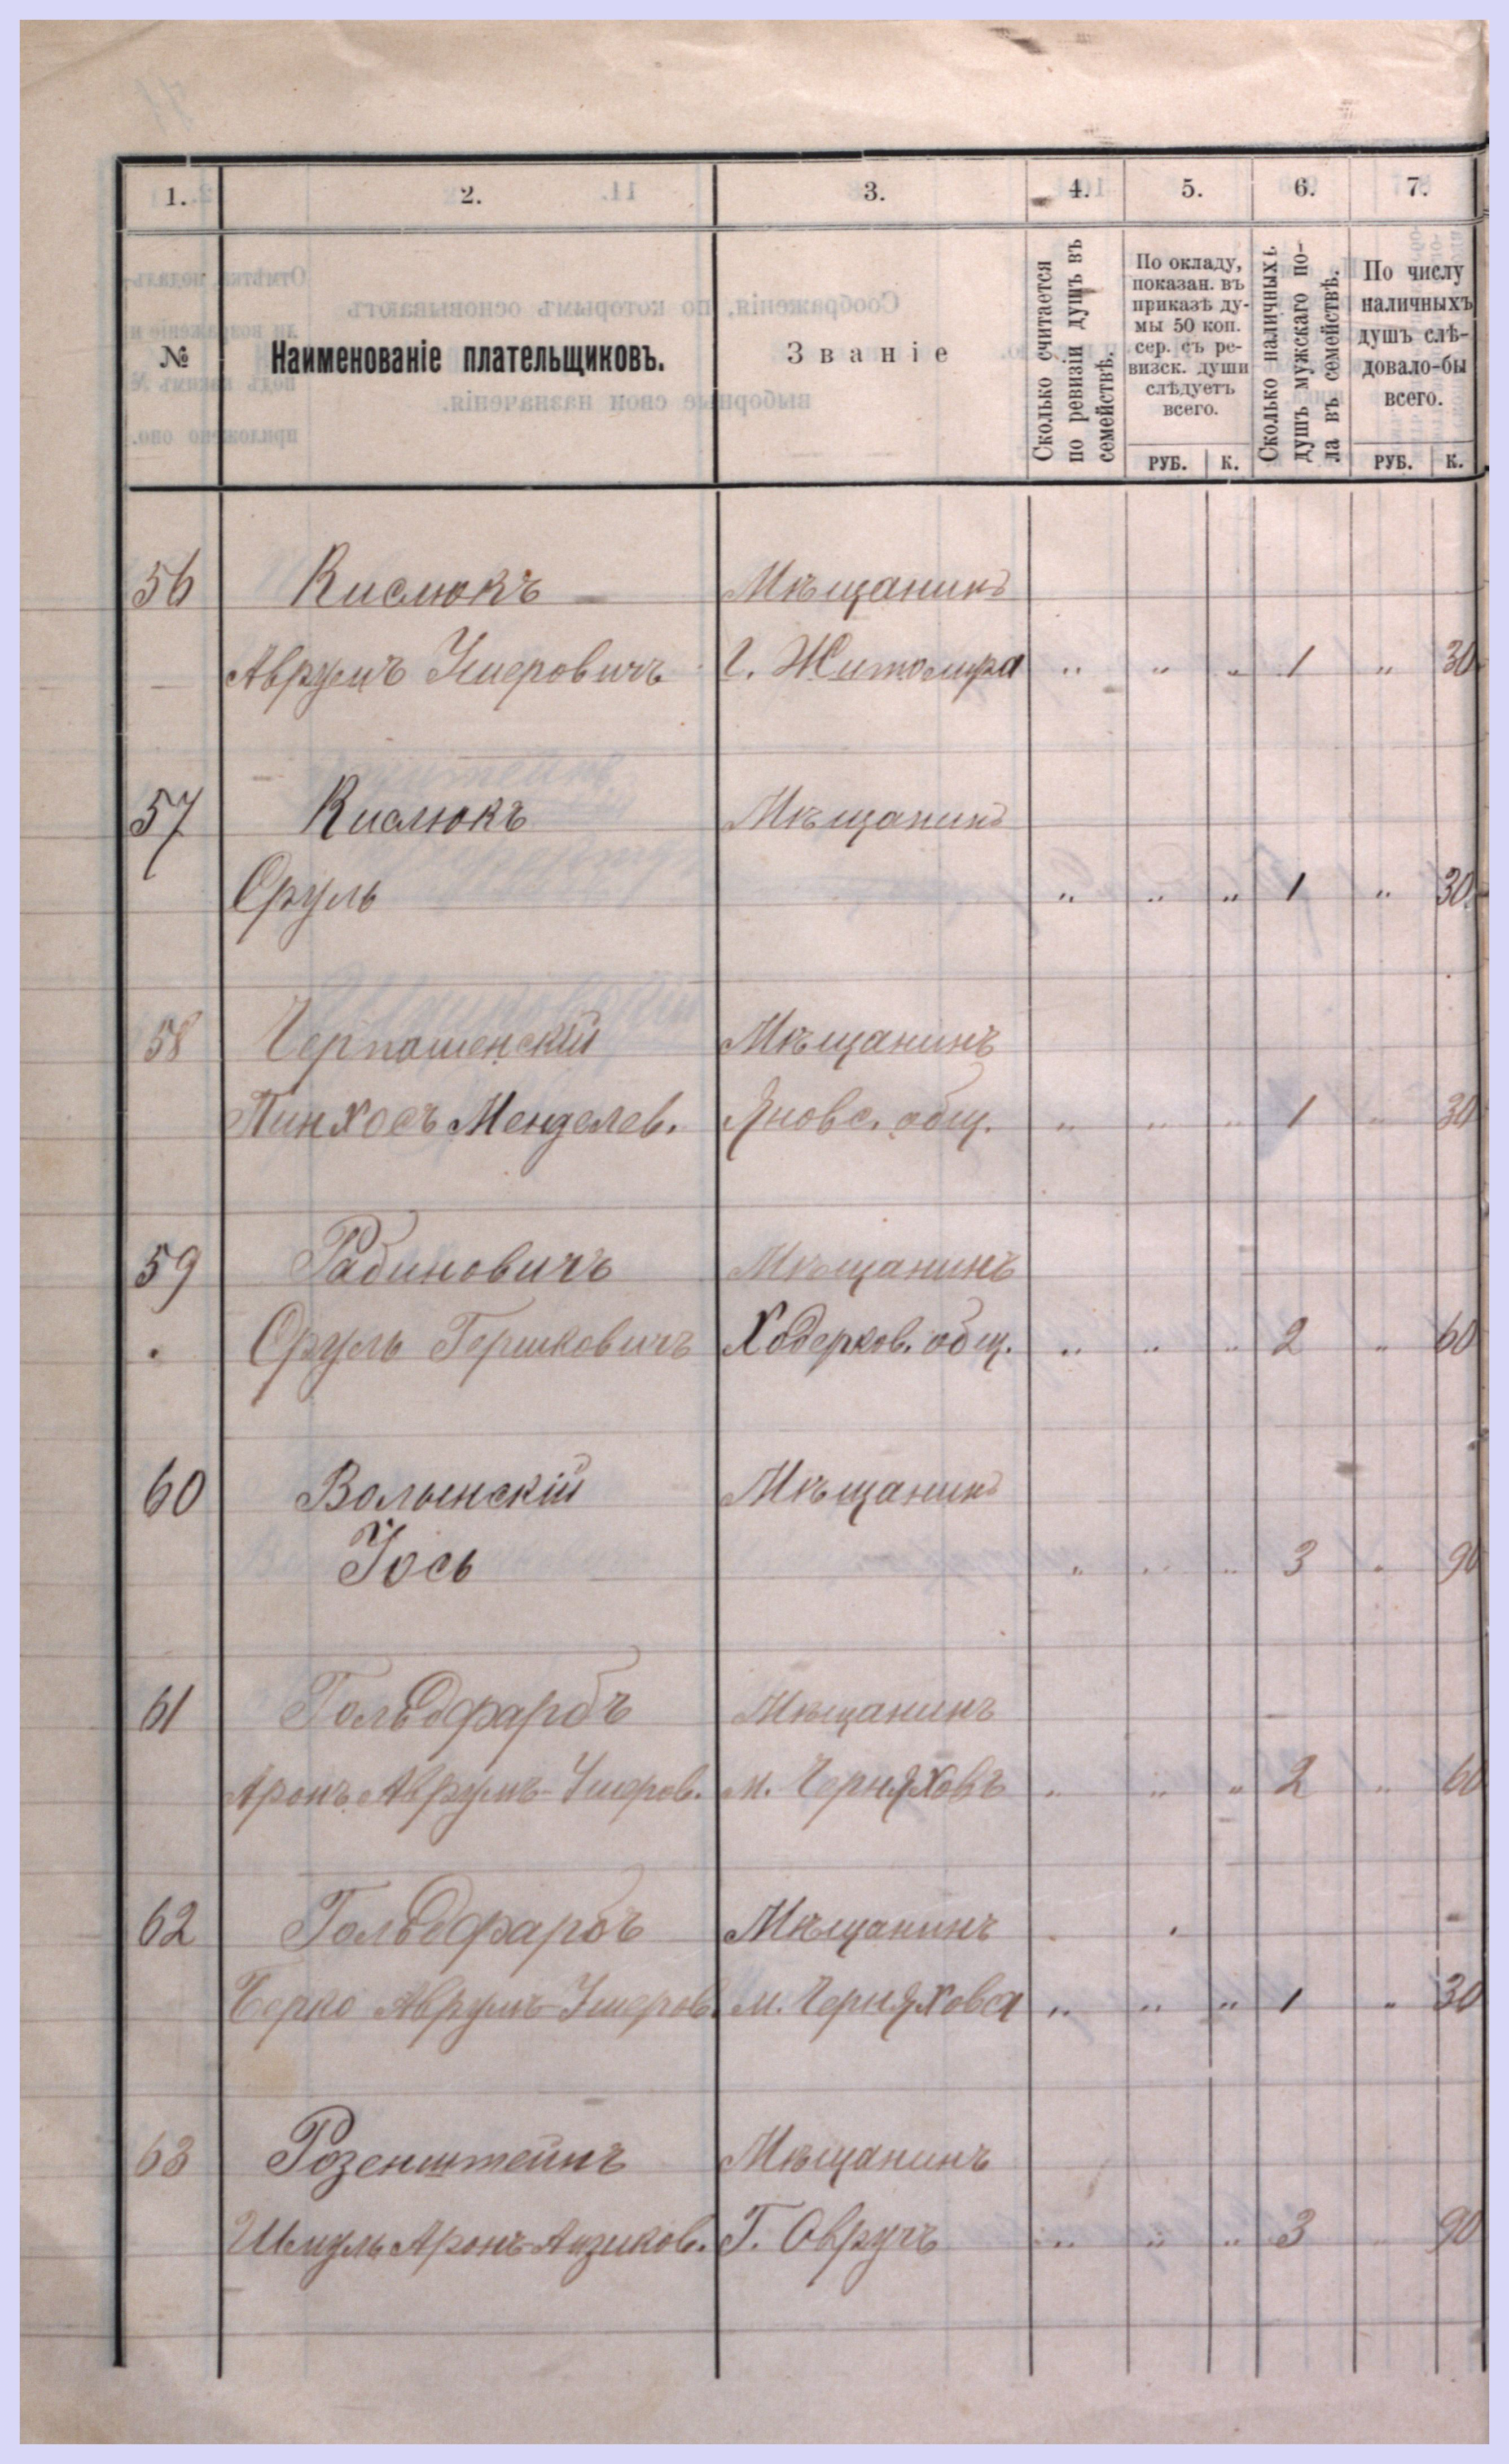 1. 2. 3. 4. 5. 6. 7.
№
Наименованіе плательщиковъ.
Званіе
Сколько считается
по ревизіи душъ въ
семействѣ.
По окладу,
показан. въ
приказѣ ду-
мы 50 коп.
сер. съ ре-
визск. души
слѣдуетъ
всего.
РУБ. К.
Сколько наличныхъ
душъ мужскаго по-
ла въ семействѣ.
По числу
наличныхъ
душъ слѣ-
довало-бы
всего.
РУБ. К.
56 Кислюкъ Мѣщанинъ
Аврумъ Умеровичъ г. Житомира „ „ „ 1 „ 30
57 Кислюкъ Мѣщанинъ
Сруль „ „ „ 1 „ 30
58 Черпашенскій Мѣщанинъ
Пинхосъ Менделев. Яновс. общ. „ „ „ 1 „ 30
59 Рабиновичъ Мѣщанинъ
Сруль Гершковичъ Ходорков. общ. „ „ „ 2 „ 60
60 Волынскій Мѣщанинъ
Іось „ „ „ 3 „ 90
61 Гольдфарбъ Мѣщанинъ
Аронъ Аврумъ-Умеров. м. Черняховъ „ „ „ 2 „ 60
62 Гольдфарбъ Мѣщанинъ
Берко Аврумъ-Умеров. м. Черняхова „ „ „ 1 „ 30
63 Розенштейнъ Мѣщанинъ
Шмуль Аронъ-Аизиков. Г. Овручъ „ „ „ 3 „ 90